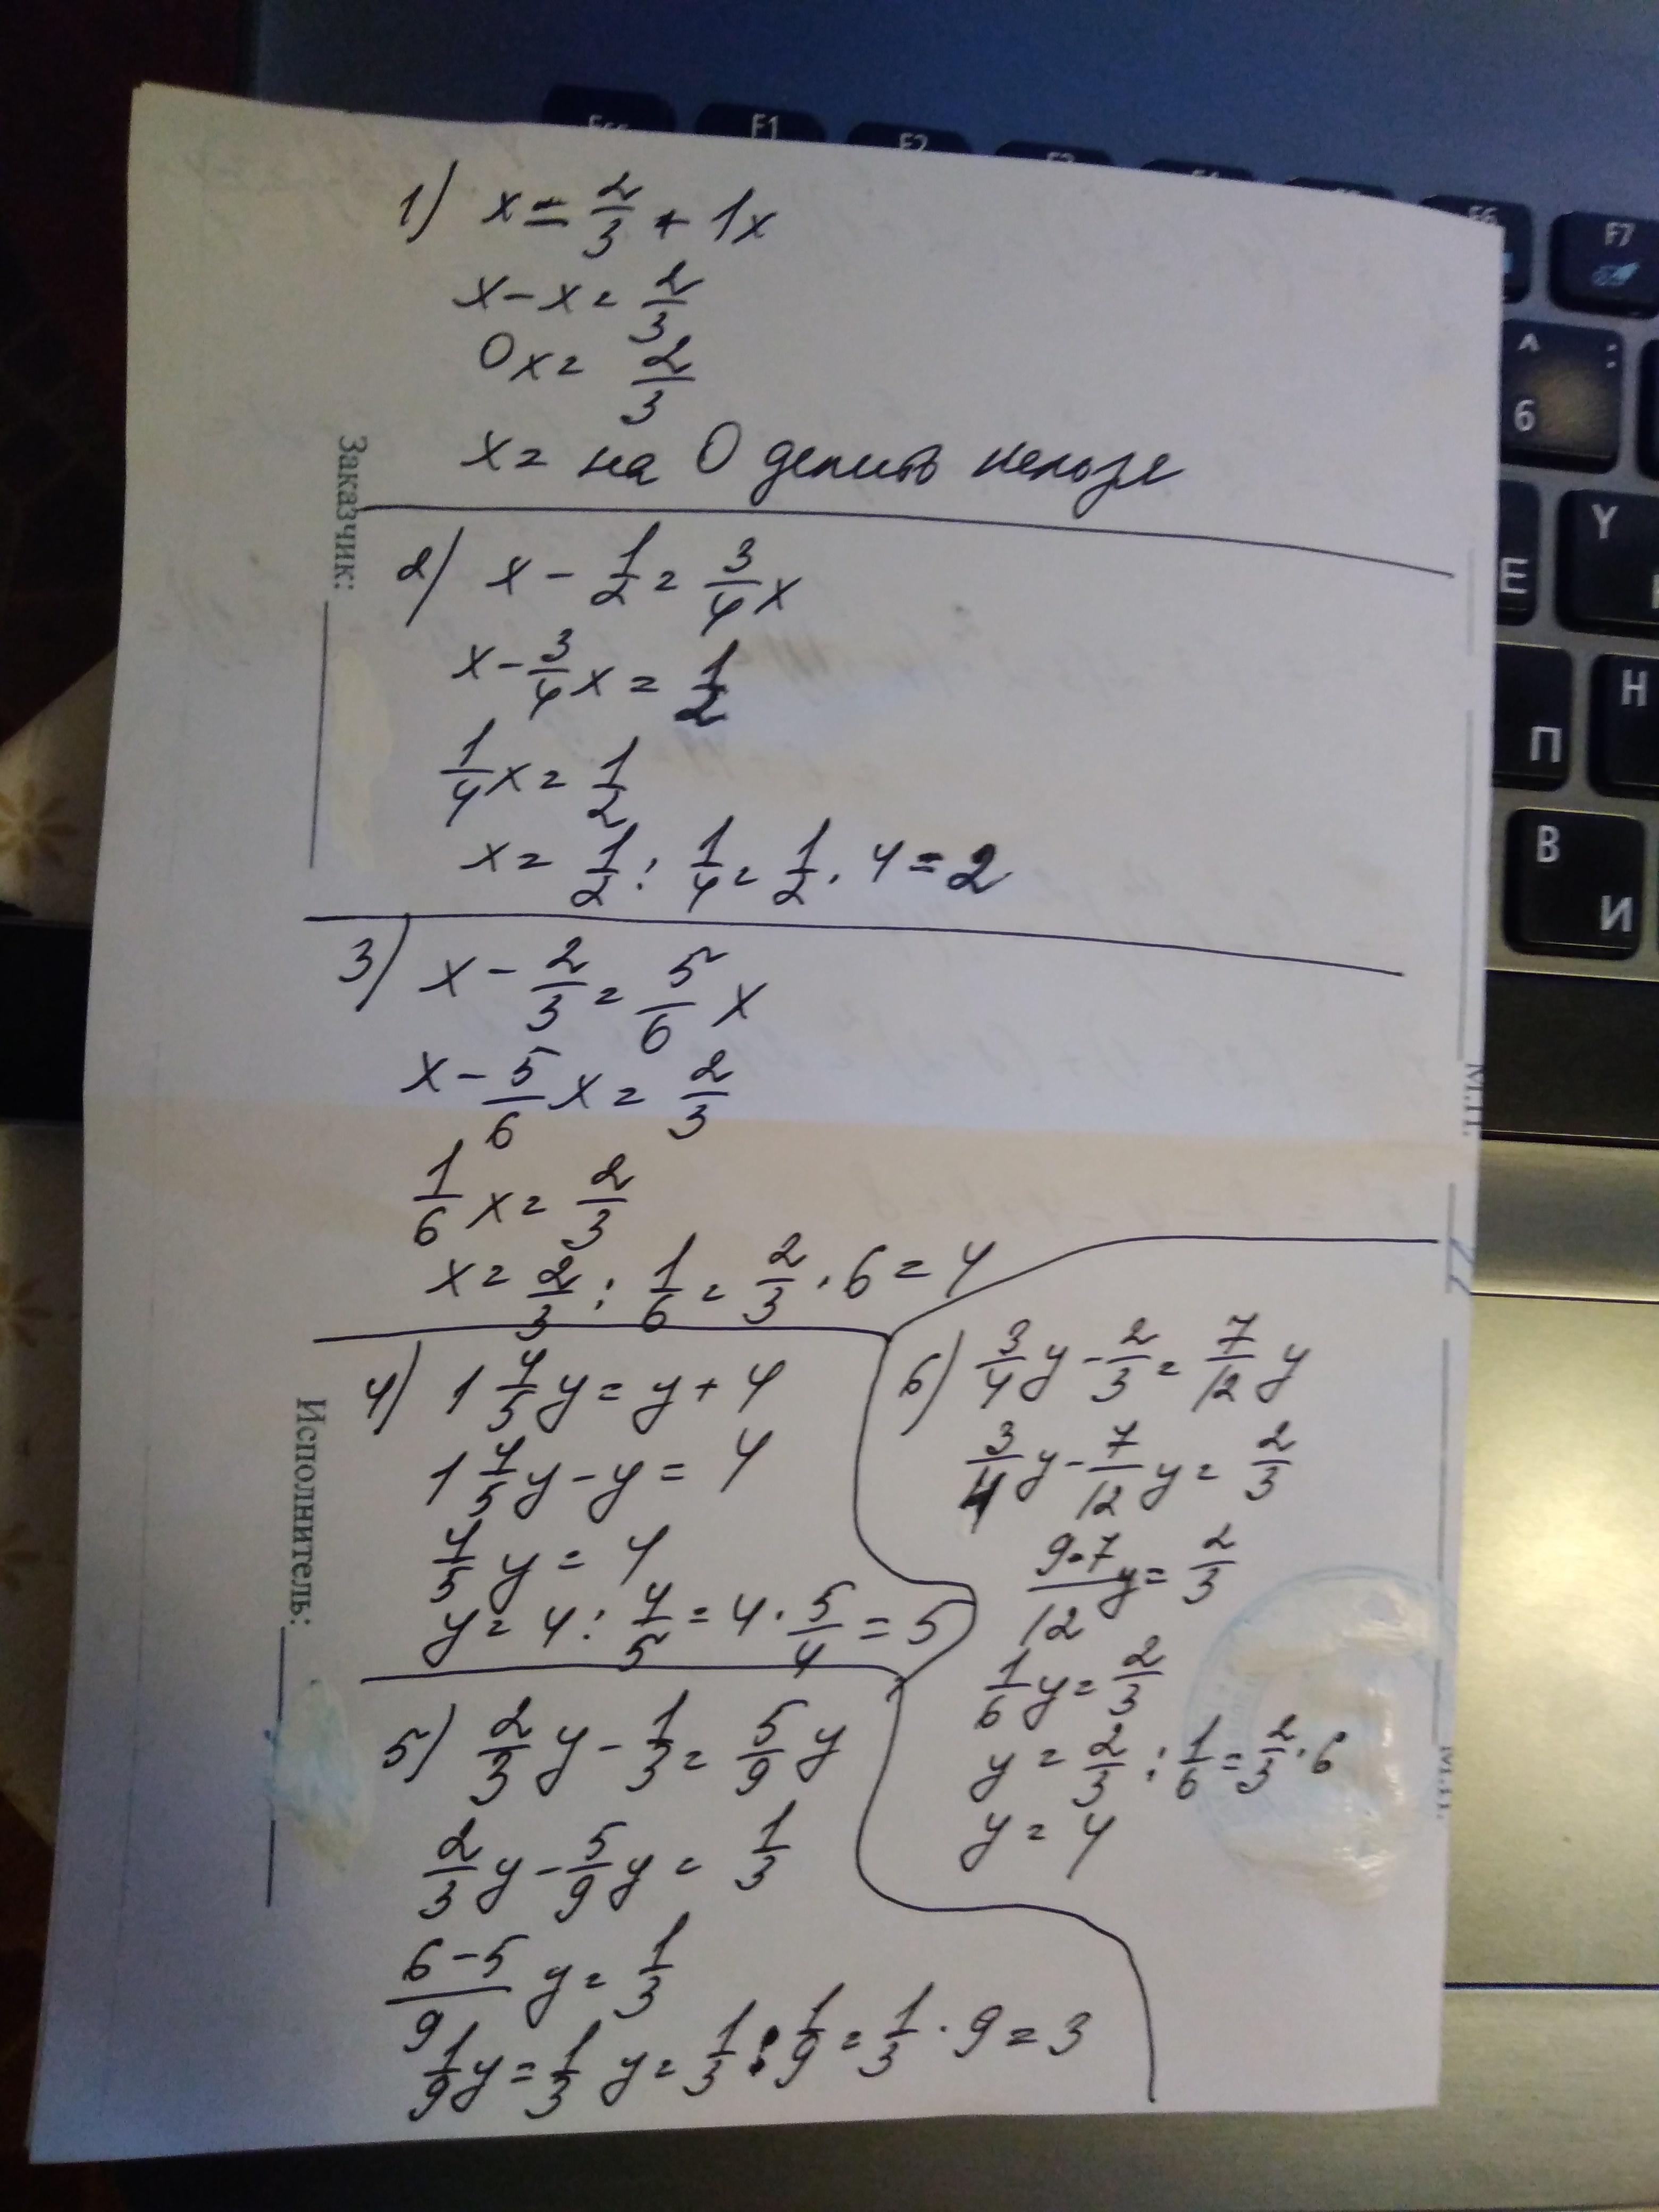 Esc F1 F2 F3 F4 F5 F6 F7
1) x = 2/3 + 1x
x - x = 2/3
0x = 2/3
x = на 0 делить нельзя
2) x - 1/2 = 3/4 x
x - 3/4 x = 1/2
1/4 x = 1/2
x = 1/2 : 1/4 = 1/2 · 4 = 2
3) x - 2/3 = 5/6 x
x - 5/6 x = 2/3
1/6 x = 2/3
x = 2/3 : 1/6 = 2/3 · 6 = 4
4) 1 4/5 y = y + 4
1 4/5 y - y = 4
4/5 y = 4
y = 4 : 4/5 = 4 · 5/4 = 5
5) 2/3 y - 1/3 = 5/9 y
2/3 y - 5/9 y = 1/3
6-5/9 y = 1/3
1/9 y = 1/3 y = 1/3 : 1/9 = 1/3 · 9 = 3
6) 3/4 y - 2/3 = 7/12 y
3/4 y - 7/12 y = 2/3
9-7/12 y = 2/3
1/6 y = 2/3
y = 2/3 : 1/6 = 2/3 · 6
y = 4
Заказчик:
Исполнитель:
М.П.
М.П.
^ :
6
Y
E
H
П
B
И